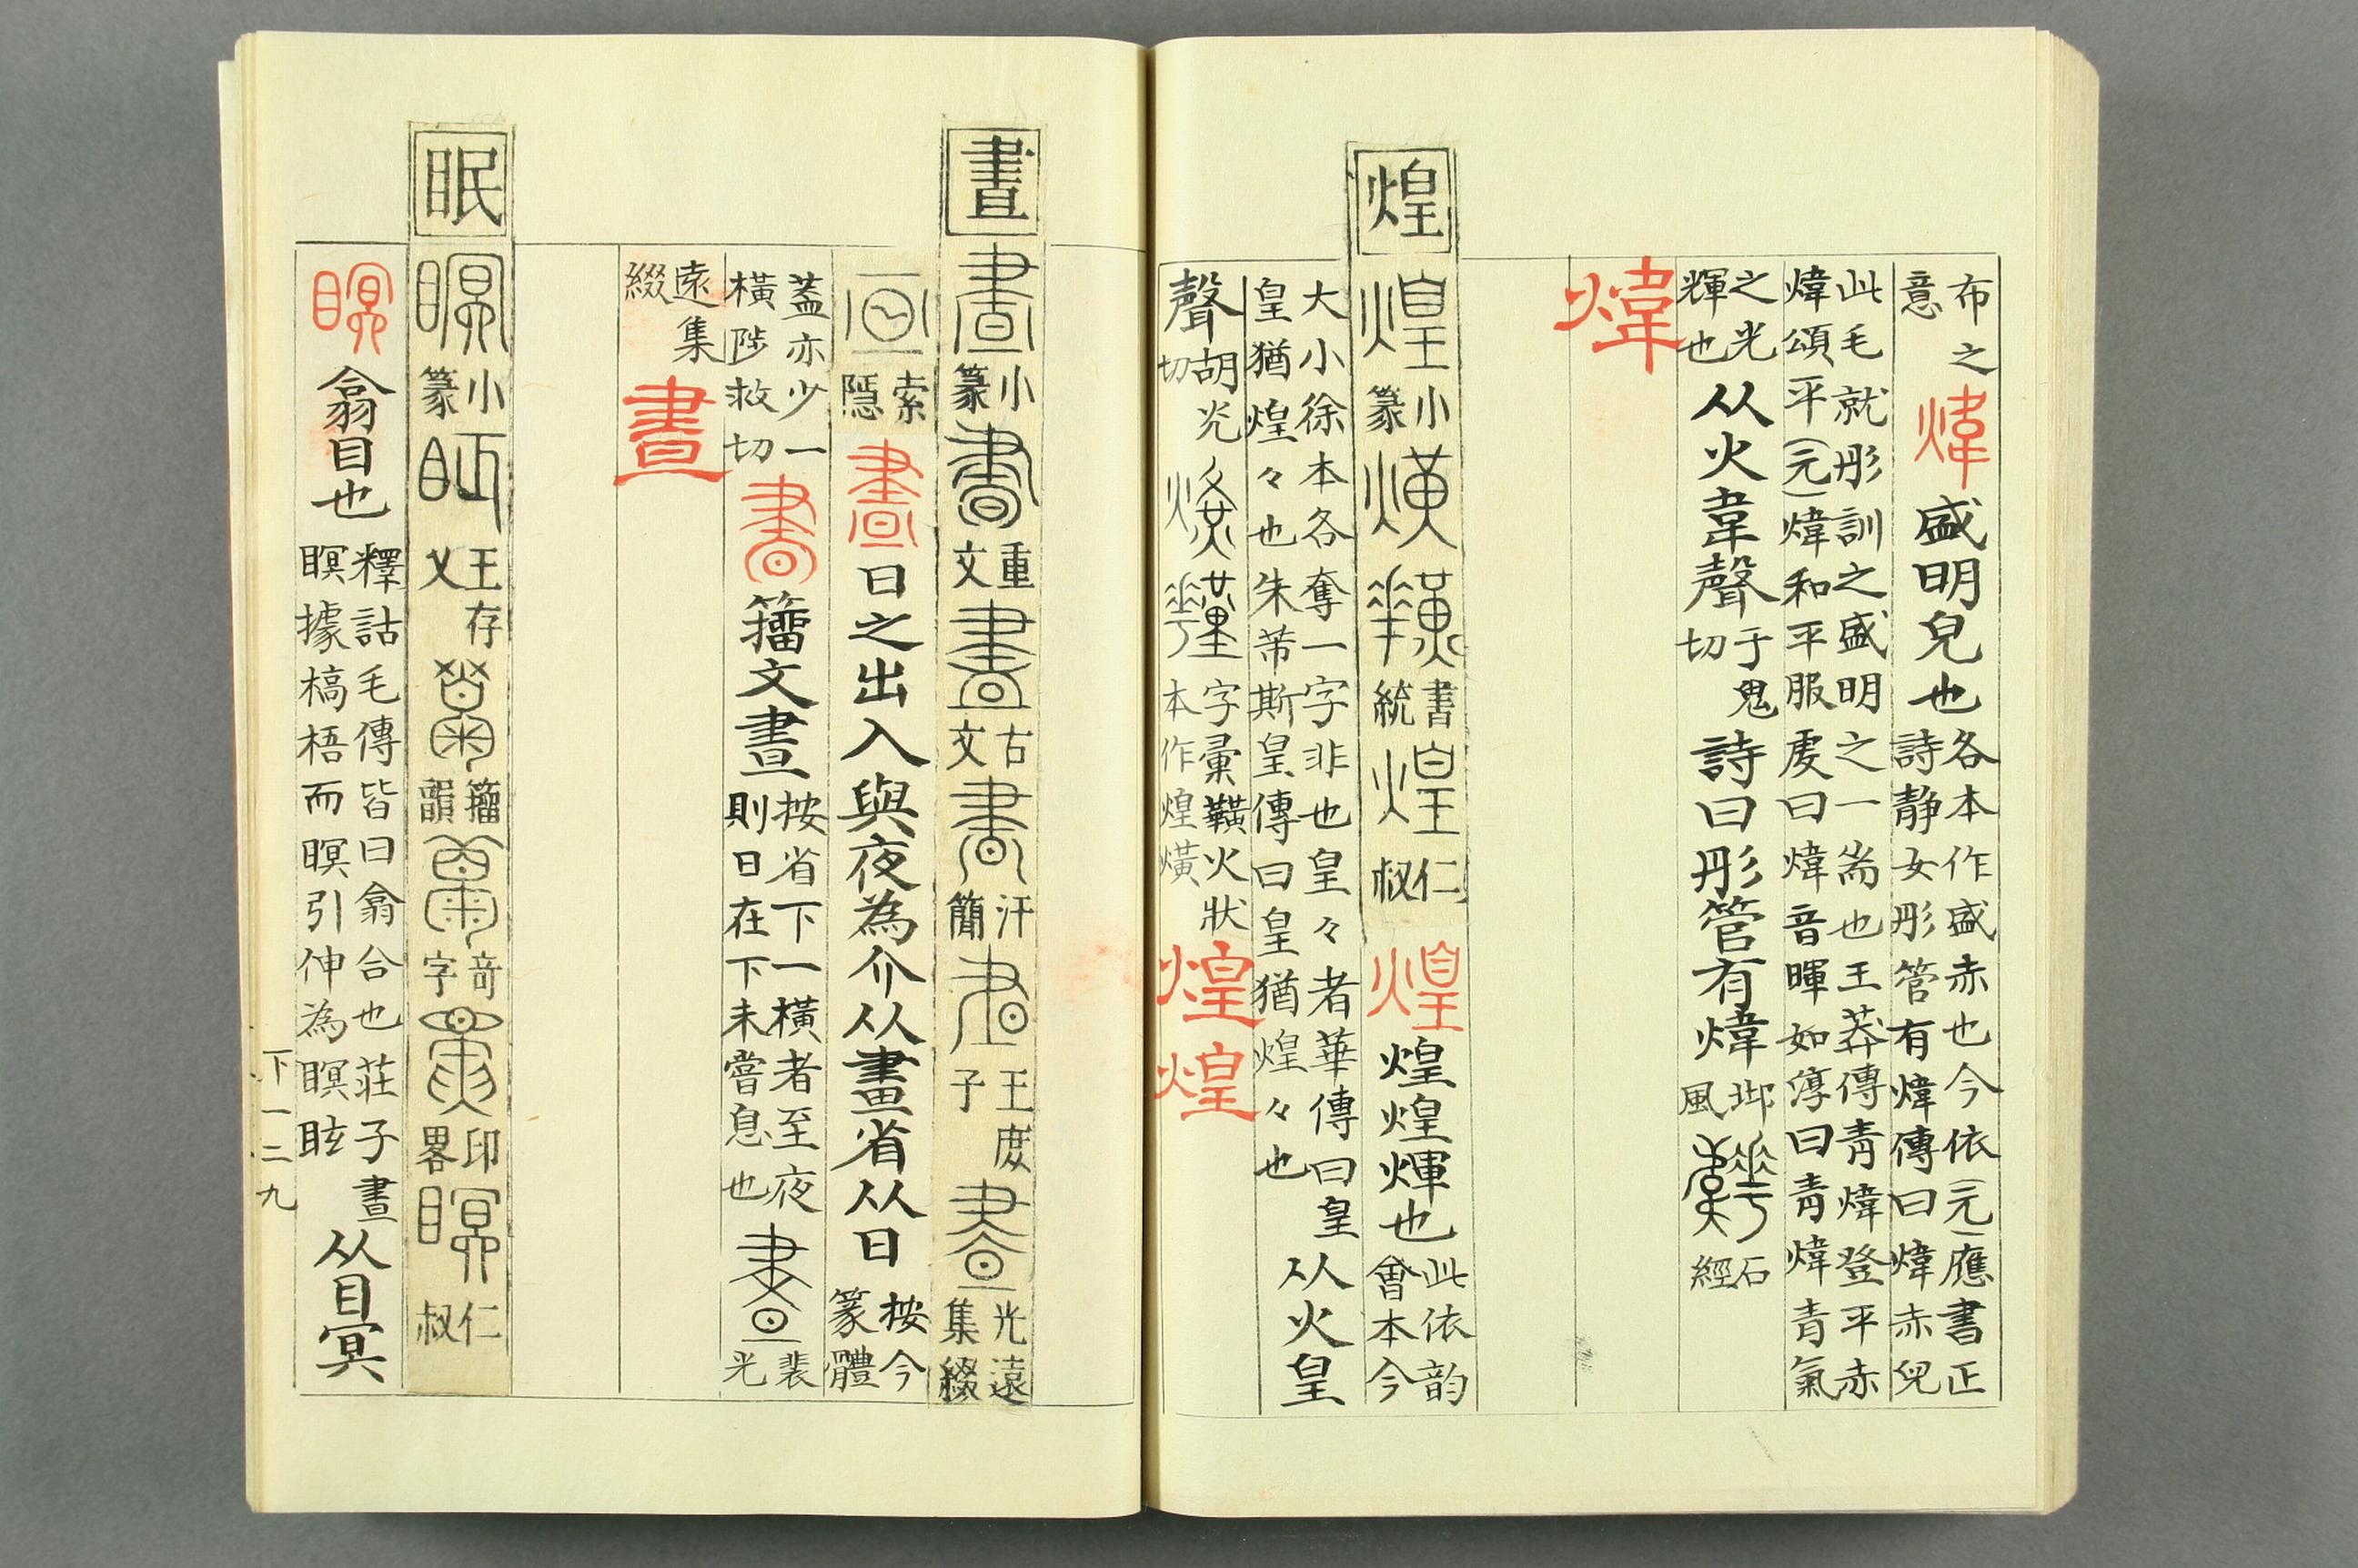 布之意煒盛明皃也各本作盛赤也今依(元)應書正詩靜女彤管有煒傳曰煒赤皃
此毛就彤訓之盛明之一耑也王莽傳青煒登平赤煒頌平(元)煒和平服虔曰煒音暉如淳曰青煒青氣
之光輝也从火韋聲于鬼切詩曰彤管有煒邶風石經
煒
煌煌小篆熿書統煌仁叔煌煌煌煇也此依韵會本今
大小徐本各奪一字非也皇々者華傳曰皇皇猶煌々也朱芾斯皇傳曰皇猶煌々也从火皇
聲胡光切字彙韹火狀本作煌熿煌煌
晝晝小篆重文古文汗簡王庶子光遠集綴
索隱晝日之出入與夜為介从畫省从日按今篆體
蓋亦少一橫陟救切籀文晝按省下一橫者至夜則日在下未嘗息也裴光
遠集綴晝
眠瞑小篆王存乂籀韻奇字印畧瞑仁叔
瞑翕目也釋詁毛傳皆曰翕合也莊子晝瞑據槁梧而瞑引伸為瞑眩从目冥
下一二九